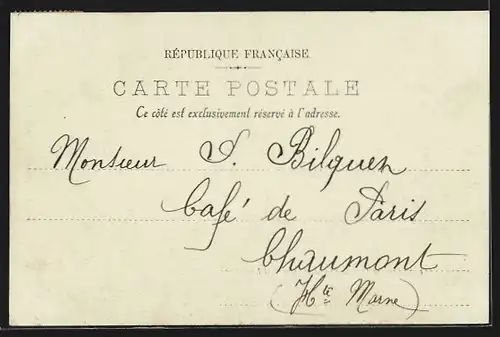 RÉPUBLIQUE FRANÇAISE.
CARTE POSTALE
Ce côté est exclusivement réservé à l'adresse.
Monsieur S. Bilguez
Café de Paris
Chaumont
(Hte Marne)